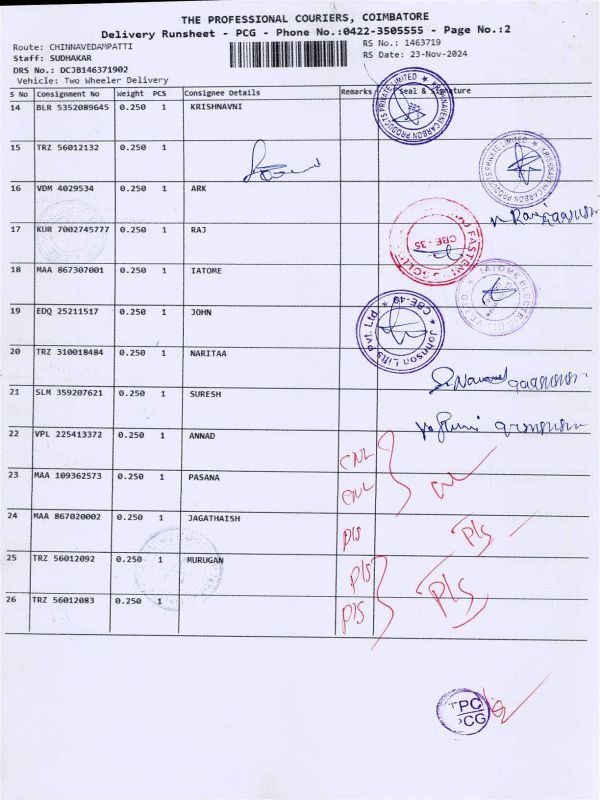 THE PROFESSIONAL COURIERS, COIMBATORE
Delivery Runsheet - PCG - Phone No.:0422-3505555 - Page No.:2
Route: CHINNAVEDAMPATTI
RS No.: 1463719
Staff: SUDHAKAR
RS Date: 23-Nov-2024
DRS No.: DCJB146371902
Vehicle: Two Wheeler Delivery
S No Consignment No Weight PCS Consignee Details Remarks Seal & Signature
14 BLR 5352089645 0.250 1 KRISHNAVNI
KRISHNAVENI CARBON PRODUCTS PRIVATE LIMITED
15 TRZ 56012132 0.250 1
KRISHNAVENI CARBON PRODUCTS PRIVATE LIMITED
16 VDM 4029534 0.250 1 ARK
17 KUR 7002745777 0.250 1 RAJ
CBE - 35
18 MAA 867307001 0.250 1 IATOME
19 EDQ 25211517 0.250 1 JOHN
Johnson Lifts Pvt. Ltd. CBE-49
20 TRZ 310018484 0.250 1 NARITAA
21 SLM 359207621 0.250 1 SURESH
22 VPL 225413372 0.250 1 ANNAD
CNL
23 MAA 109362573 0.250 1 PASANA
CNL
24 MAA 867020002 0.250 1 JAGATHAISH
Pls Pls
25 TRZ 56012092 0.250 1 MURUGAN
Pls Pls
26 TRZ 56012083 0.250 1
Pls
TPC
PCG